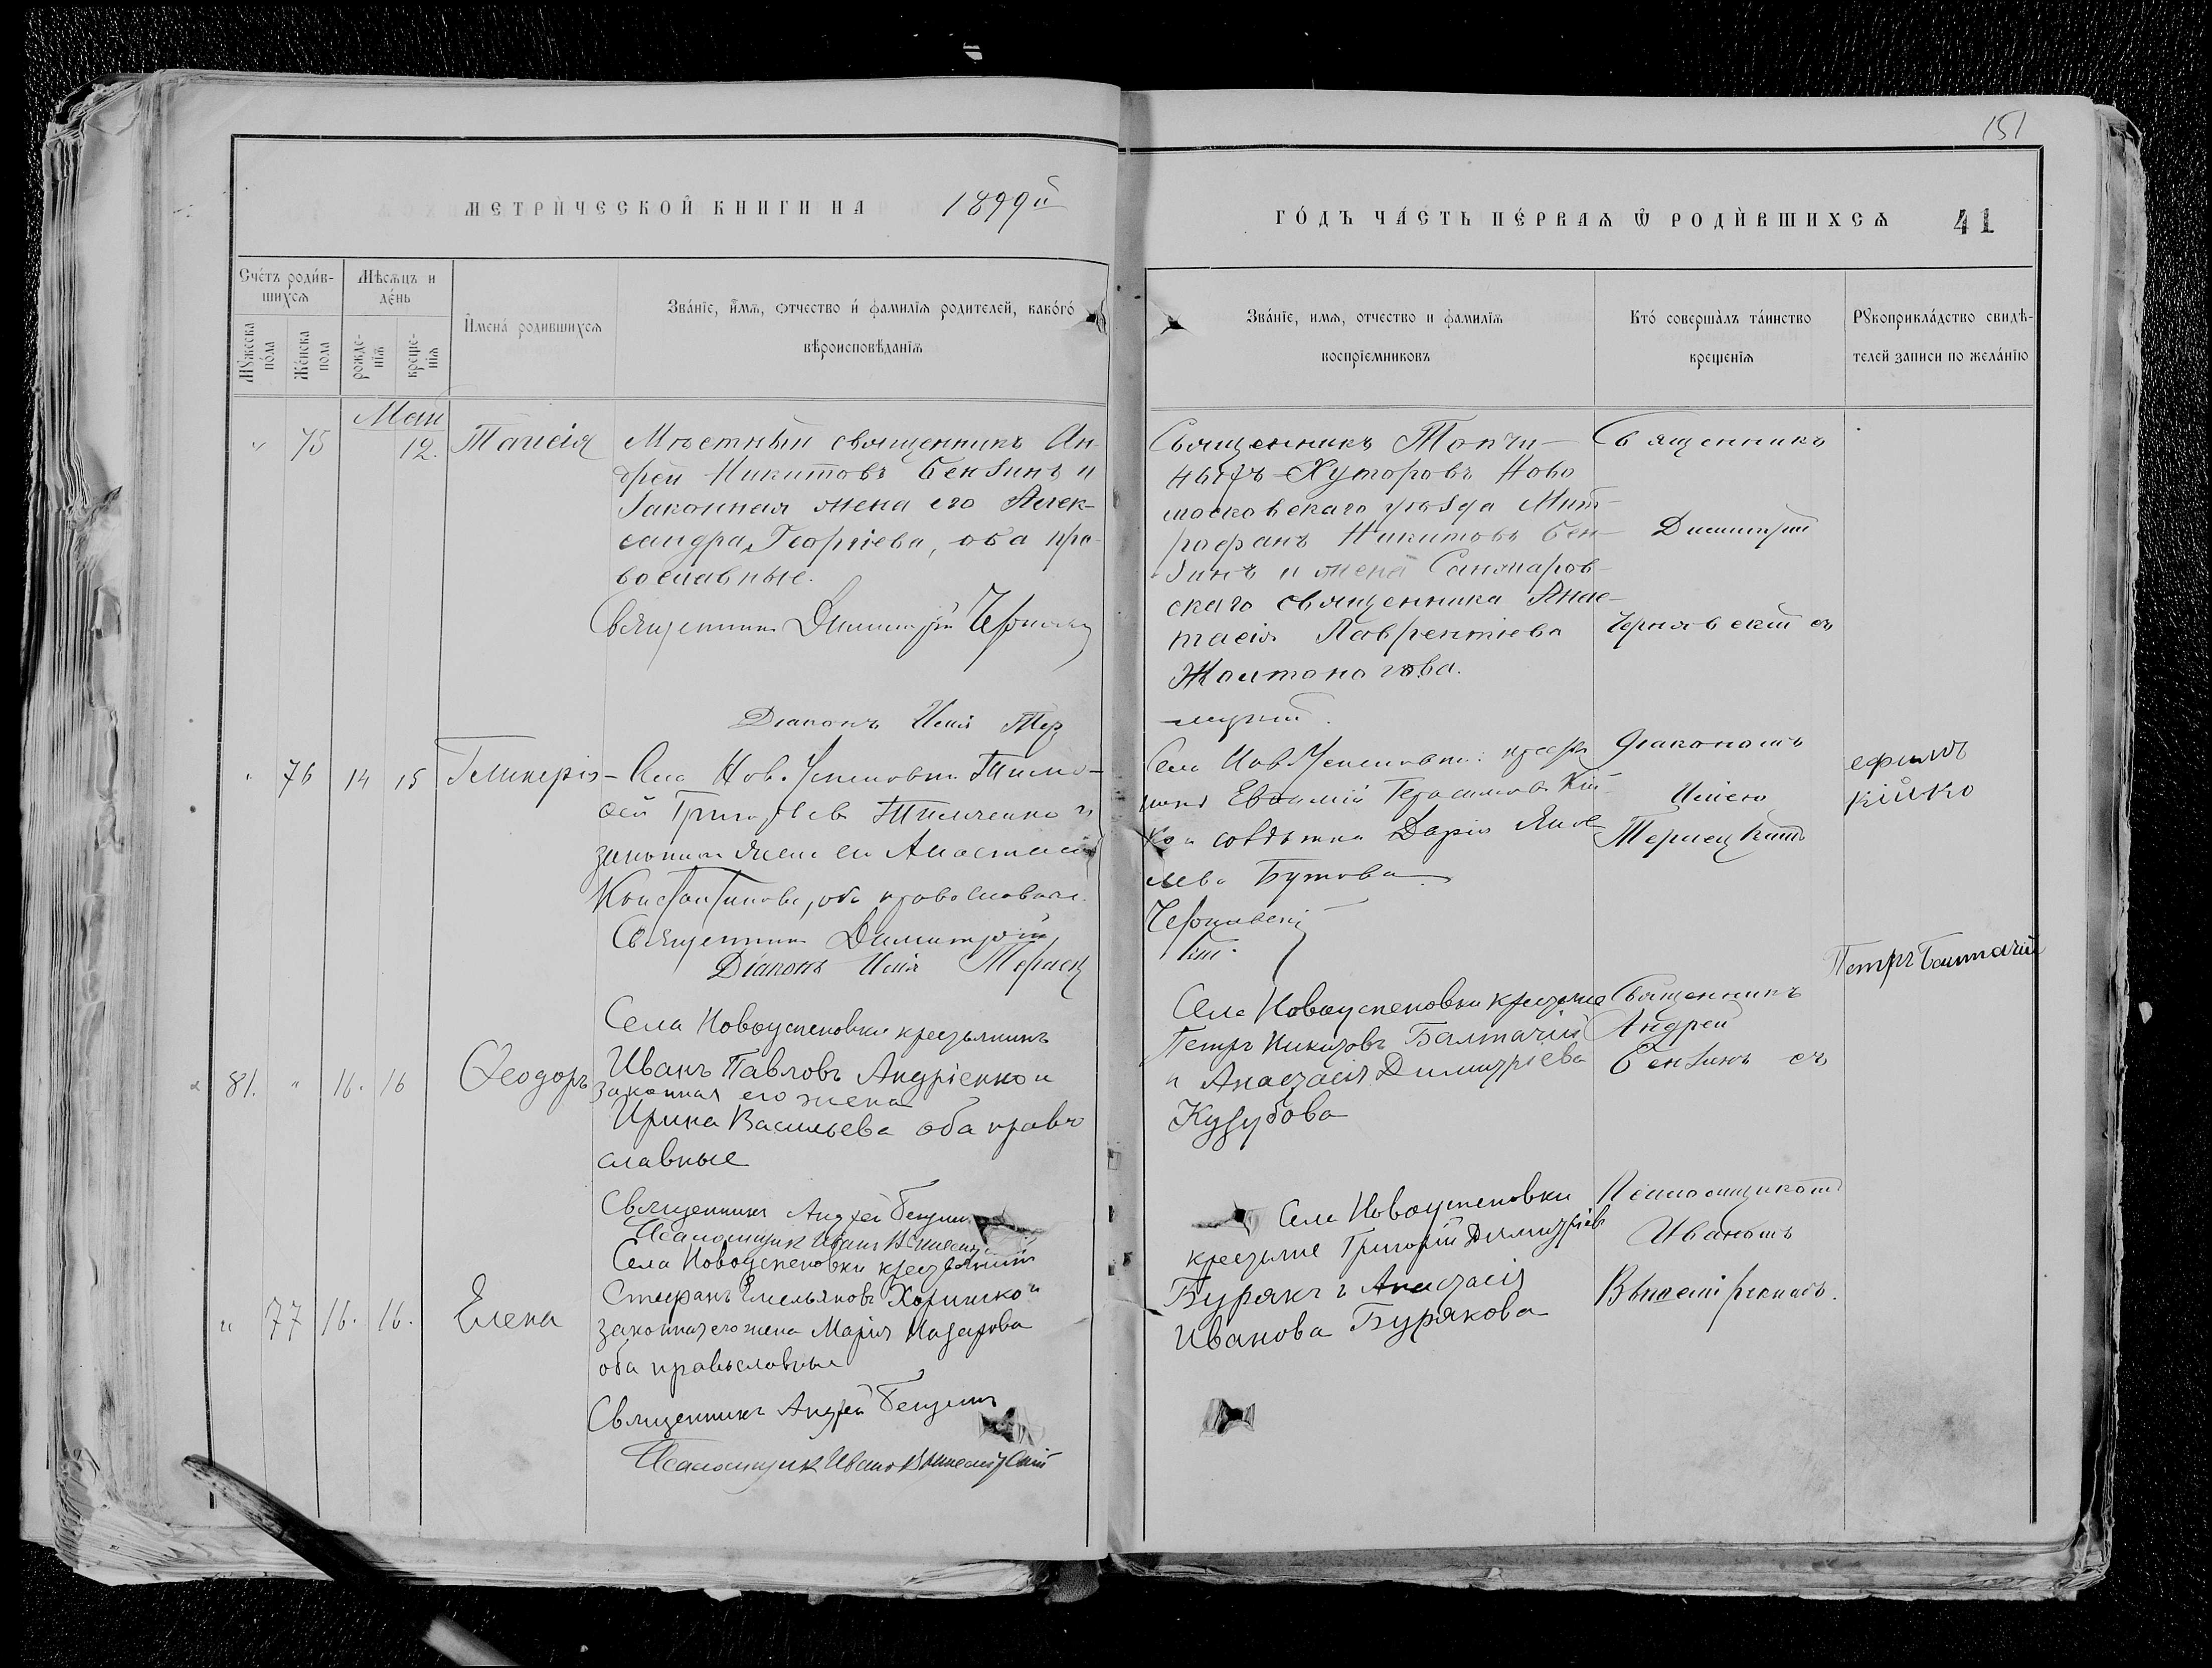 151
МЕТРИ́ЧЕСКОЙ КНИГИ НА 1899й
ГО́ДЪ ЧА́СТЬ ПЕ́РВАѦ Ѡ҆ РОДИ́ВШИХСѦ 41
Сче́тъ роди́в-
шихсѧ
Мѣсѧцъ и
де́нь
Мꙋжеска
по́ла
Же́нска
пола
рожде-
нїѧ
креще-
нїѧ
И҆мена́ родившихсѧ
Зва́нїе, и҆́мѧ, ѻтчество и҆ фамилїѧ родителей, како́гѡ
вѣроисповѣданїѧ
Зва́нїе, имѧ, отчество и фамилїѧ
воспрїемниковъ
Кто́ соверша̀лъ та́инство
крещенїѧ
Рꙋкоприкла́дство свидѣ-
телей записи по жела́нїю
Май
" 75 12. Таисія
Мѣстный священникъ Ан-
дрей Никитовъ Бензинъ и
законная жена его Алек-
сандра Георгіева, оба пра-
вославные.
Священникъ Димитрій
Діаконъ Исаія
Священникъ Топчи-
ныхъ Хуторовъ Ново
московскаго уѣзда Мит-
рофанъ Никитовъ Бен-
зинъ и жена
скаго священника Анас-
тасія Лаврентіева
Желтоногова.
Священникъ
Димитрій
Чернявскій съ
" 76 14 15 Гликерія
Села Нов. Успеновки Тимо-
фей Григорьев Тимченко и
законная жена его Анастасія
Константинова, оба православные.
Священникъ Димитрій
Діаконъ Исаія Терлец
Села Нов. Успеновки:
Евфимій Герасимовъ Кій-
ко и Дарія Яков-
лева Бутова
Чернявскій
кій.
Діакономъ
Исаіею
Терлецкимъ
ефимъ
кійко
81. " 16. 16 Ѳеодоръ
Села Новоуспеновки крестьянинъ
Иванъ Павловъ Андріенко и
законная его жена
Ирина Васильева оба право
славные
Священникъ Андрей Бензинъ
Псаломщик Иванъ
Села Новоуспеновки крестьяне
Петръ Никитовъ Балтачій
и Анастасія Димитріева
Кузубова
Священникъ
Андрей
Бензинъ съ
Петръ Балтачій
" 77 16. 16. Елена
Села Новоуспеновки крестьянинъ
Стефанъ Емельяновъ Хоришко и
законная его жена Марія Назарова
оба православные
Священникъ Андрей Бензинъ
Псаломщик Иванъ
Села Новоуспеновки
крестьяне Григорій Димитріевъ
Бурякъ и Анастасія
Иванова Бурякова
Псаломщикомъ
Иваномъ